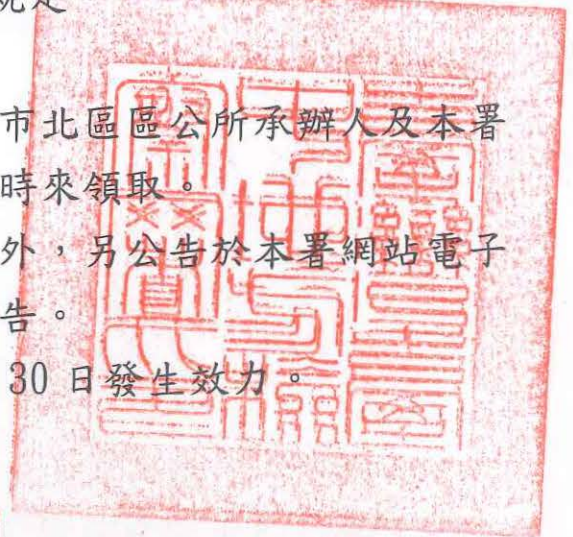 市北區區公所承辦人及本署
時來領取。
外，另公告於本署網站電子
告。
30日發生效力。